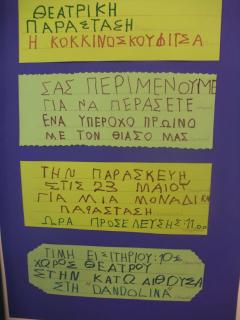 ΘΕΑΤΡΙΚΗ
ΠΑΡΑΣΤΑΣΗ
Η ΚΟΚΚΙΝΟΣΚΟΥΦΙΤΣΑ
ΣΑΣ ΠΕΡΙΜΕΝΟΥΜΕ
ΓΙΑ ΝΑ ΠΕΡΑΣΕΤΕ
ΕΝΑ ΥΠΕΡΟΧΟ ΠΡΩΙΝΟ
ΜΕ ΤΟΝ ΘΙΑΣΟ ΜΑΣ
ΤΗΝ ΠΑΡΑΣΚΕΥΗ
ΣΤΙΣ 23 ΜΑΙΟΥ
ΓΙΑ ΜΙΑ ΜΟΝΑΔΙΚΗ
ΠΑΡΑΣΤΑΣΗ
ΩΡΑ ΠΡΟΣΕΛΕΥΣΗΣ:11.00
ΤΙΜΗ ΕΙΣΗΤΗΡΙΟΥ:10
ΧΩΡΟΣ ΘΕΑΤΡΟΥ
ΣΤΗΝ ΚΑΤΩ ΑΙΘΟΥΣΑ
ΣΤΗ DANDOLINA